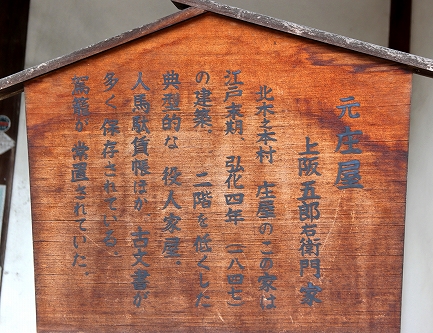 元庄屋
上阪五郎右衛門家
北木之本村 庄屋のこの家は
江戸末期、弘化四年(一八四七)
の建築、 二階を低くした
典型的な 役人家屋。
人馬駄賃帳ほか 古文書が
多く保存されている。
駕籠が常置されていた。